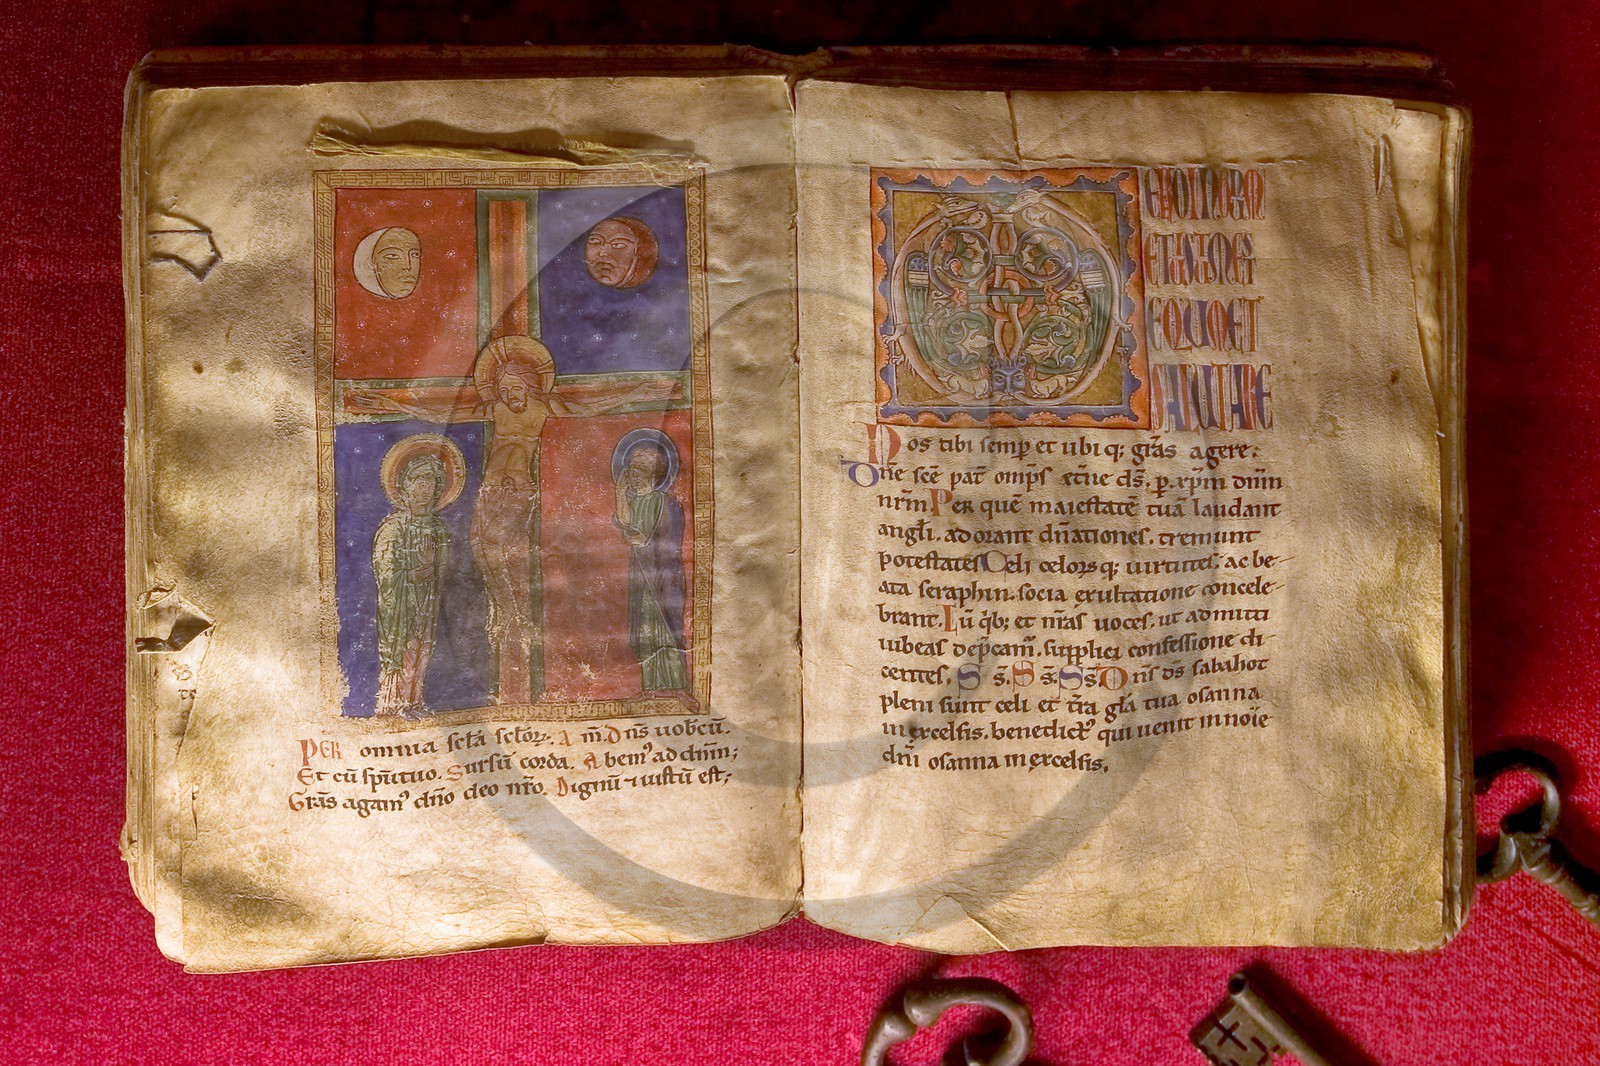 PER omnia scła scłoꝝ. A m̄. Dn̄s uobcū.
Et cū sp̄ituo. Sursū corda. Abem᾽ ad dn̄m;
Grās agam᾽ dn̄o deo nr̄o. Dignū ⁊ iustū est;
ET IUSTUM EST
EQUUM ET
SALUTARE
Nos tibi semp̄ et ubiq; grās agere.
Dn̄e sc̄e pat̄ omp̄s et̄ne ds̄. p̱ xp̄m dn̄m
nr̄m Per quē maiestatē tuā laudant
angłi. adorant dn̄ationes. tremunt
potestates Celi celorq; uirtutes. ac be-
ata seraphin. socia exultatione concele-
brant. Cū q̇b; et nr̄as uoces. ut admitti
iubeas dep̄cam̄. supplici confessione di-
centes. S s̄. S s̄. S s̄. Dn̄s ds̄ sabahot
pleni sunt celi et t̄ra głā tua osanna
in excelsis. benedict᾽ qui uenit in noīe
dn̄i osanna in excelsis.